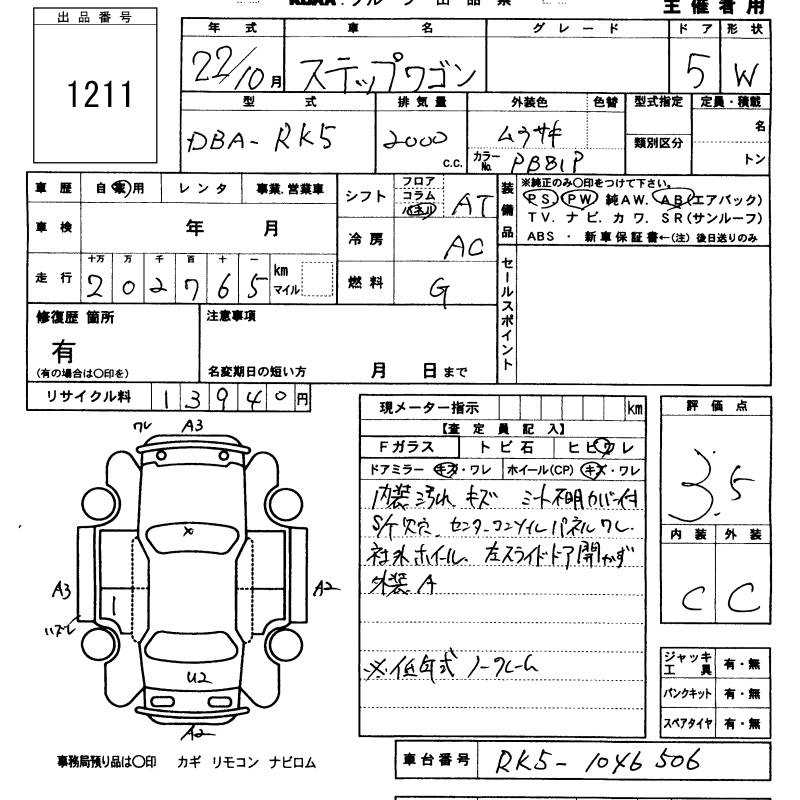 出品票
主催者用
出品番号
1211
年式 車名 グレード ドア 形状
22/10月 ステップワゴン 5 W
型式 排気量 外装色 色替 型式指定 定員・積載
DBA-RK5 2000 c.c. ムラサキ 類別区分 名
カラーNo. PB81P トン
車歴 自家用 レンタ 事業.営業車 シフト フロア コラム パネル AT
車検 年 月 冷房 AC
走行 十万 万 千 百 十 一 km マイル
2 0 2 7 6 5 燃料 G
装備品 ※純正のみ〇印をつけて下さい。
PS PW 純AW. AB(エアバック)
TV. ナビ. カワ. SR(サンルーフ)
ABS ・ 新車保証書←(注) 後日送りのみ
セールスポイント
修復歴 箇所 注意事項
有
(有の場合は〇印を) 名変期日の短い方 月 日まで
リサイクル料 13940円
現メーター指示 km
【査定員記入】
Fガラス トビ石 ヒビワレ
ドアミラー キズ・ワレ ホイール(CP) キズ・ワレ
内装汚れ キズ シート不明カバー付
S/ケ穴穴 センターコンソイルパネルワレ
社外ホイール 左スライドドア開かず
外装A
※低年式 ノークレーム
評価点
3.5
内装 外装
C C
ワレ A3
A3
ハズレ
A2
U2
A2
ジャッキ工具 有・無
パンクキット 有・無
スペアタイヤ 有・無
事務局預り品は〇印 カギ リモコン ナビロム
車台番号 RK5-1046506